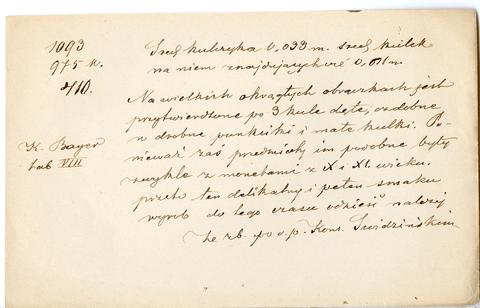 1093
975 k.
410.
K. Bayer
tab VIII
Szer. kulczyka 0,033 m. szer. kulek
na niem znajdujących się 0,011 m.
Na wielkich okrągłych obrączkach jest
przytwierdzone po 3 kule dęte, ozdobne
w drobne punkciki i małe kulki. Po-
nieważ zaś przedmioty im podobne były
zwykle z monetami z X i XI. wieku.
przeto ten delikatny i pełen smaku
wyrób do tego czasu odnieść należy
Ze zb. po ś. p. Kons. Świdzińskim